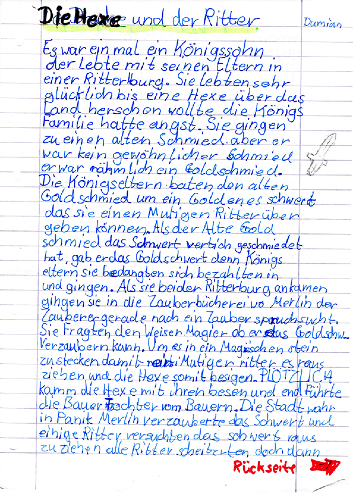 Die Hexe und der Ritter
Damian
Es war ein mal ein Königssohn
der lebte mit seinen Eltern in
einer Ritterburg. Sie lebten sehr
glücklich bis eine Hexe über das
Land herschen wollte die Königs
Familie hatte angst. Sie gingen
zu einen alten Schmied aber er
war kein gewöhnlicher Schmied
er war nähmlich ein Goldschmied.
Die Königseltern baten den alten
Goldschmied um ein Goldenes schwert
das sie einen Mutigen Ritter über
geben können. Als der Alte Gold
schmied das Schwert vertich geschmiedet
hat, gab er das Goldschwert denn Königs
eltern sie bedangten sich bezahlten in
und gingen. Als sie bei der Ritterburg ankamen
gingen sie in die Zauberbücherei wo Merlin der
Zauberer gerade nach ein Zauberspruch sucht.
Sie Fragten den Weisen Magier ob er das Goldschw.
Verzaubern kann. Um es in ein Magischen stein
zu stecken damit ein Mutiger ritter es raus
ziehen und die Hexe somit besigen. PLÖTZLICH
kamm die Hexe mit ihren besen und entführte
die Bauer Tochter vom Bauern. Die Stadt wahr
in Panik Merlin verzauberte das Schwert und
einige Ritter versuchten das schwert raus
zu ziehen alle Ritter scheiterten doch dann
Rückseite